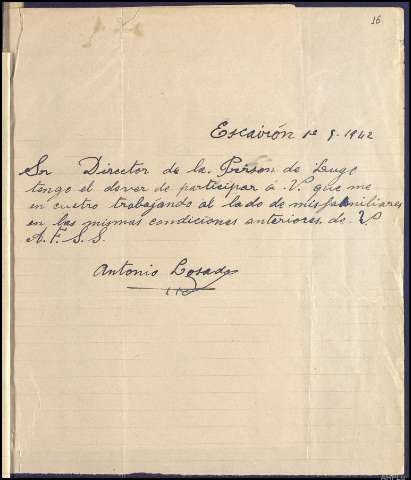 16
Escairón 1º 9. 1942
Sr Director de la Prison de Lugo
tengo el dever de participar á V. que me
en cuetro trabajando al lado de mis familiares
en las mismas condiciones anteriores. de V.
A. F. S. S.
Antonio Losada